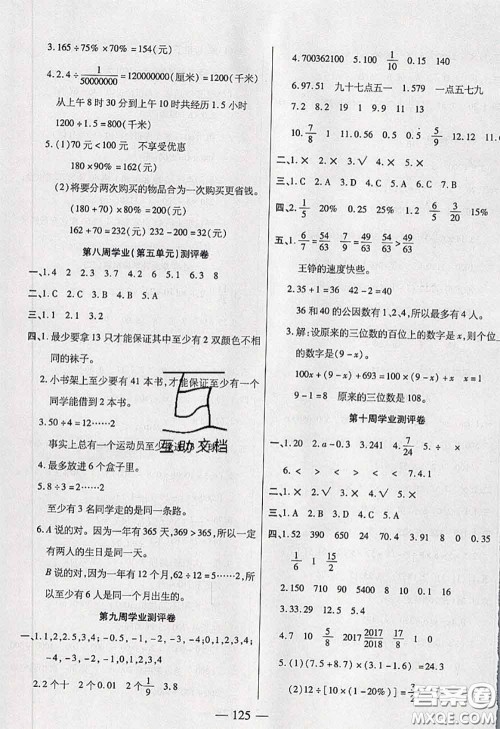 3.165÷75%×70%=154(元)
4.2.4÷1/50000000=120000000(厘米)=1200(千米)
从上午 8 时 30 分到上午 10 时共经历 1.5 小时
1200÷1.5=800(千米)
5.(1)70 元<100 元 不享受优惠
180×90%=162(元)
(2)将要分两次购买的物品合为一次购买更省钱。
(180+70)×80%=200(元)
162+70=232(元) 232-200=32(元)
第八周学业(第五单元)测评卷
一、1.4 2.7 3.2 4.5 5.2 6.1 7.6.3 8
二、1.× 2.√ 3.× 4.√ 5.×
三、1.C 2.B 3.D 4.B 5.A
四、1.最少要拿 13 只才能保证其中至少有 2 双颜色不相
同的袜子。
2.小书架上至少要有 41 本书,才能保证至少有一个
同学能借到 2 本书。
3.50÷6=8……2
事实上总有一个运动员至少
4.最多放进 6 个盒子里。
5.8÷3=2……2
至少有 3 名同学走的是同一条路。
6.A 说的对。因为一年有 365 天,369>365,所以一定
有两人的生日是同一天。
B 说的对,因为一年有 12 个月,62÷12=5……2,所
以至少有 6 人是同一个月出生的。
第九周学业测评卷
一、1.1,2,2.5,3,4; -0.5, -1, -2, -3, -4; 0,1,2,3,4;
-4, -3, -2, -1, -0.5,0,1,2,2.5,3,4
2.2个十 2个 0.01 2个1/9 3.8
4.700362100 5.80 1/10 0.15 140
6.97.51 九十七点五一 1.579 一点五七九
7.2 8.2 9.19 10.15
11.7/8 1 12.0.56 0.5 0.5 5/9 13.12.5
二、1.× 2.× 3.√ 4.√ 5.×
三、1.C 2.C 3.C 4.B 5.A
四、2.1/5 20% 0.32 1.25 15% 2/15
五、1.6/7=54/63 7/9=49/63 54/63>49/63
王铮的速度快些。
2.36-0=35 42-2=40
36 和 40 的公因数有 1,2,4,所以最多有 4 人。
3.解:设原来的三位数的百位上的数字是 x,则个位
的数字是(9-x)。
100x+(9-x)+693=100×(9-x)+x x=1
9-1=8 原来的三位数是 108。
第十周学业测评卷
一、1.20 2.- 3.0.241 4.7/24 5.÷ ×
二、1.× 2.√ 3.× 4.× 5.√
三、1.D 2.A 3.C 4.A 5.D
四、1.52 390 650 24 0.4 9 0.35
1/6 1 15/2
2.150 710 90 5400 8 10 0.1
3.33.4 1.2 0.16 8.1 0 0.01
4.7 10 5/8 2017/2018 17/18 8 1
5.(1)(7.7+5.8)×(3.1-1.6)=
(2)12÷[10×(1-20%)]=
互助文档
125
答案圈
MXQE.COM